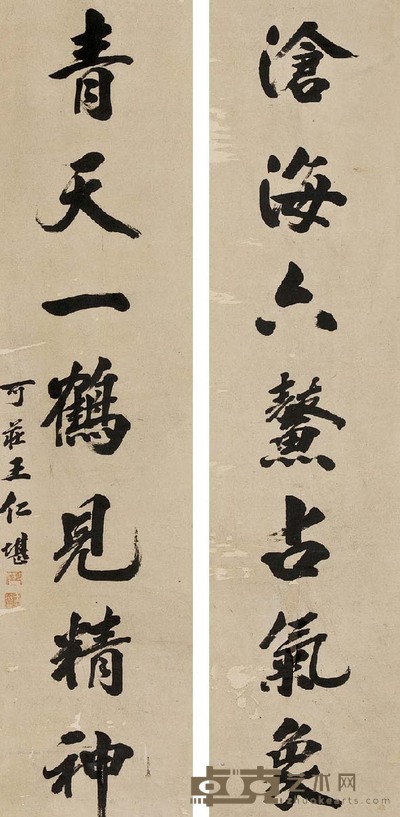 滄海六鼇占氣象
青天一鶴見精神
可莊王仁堪
卓克艺术网
zhuokearts.com